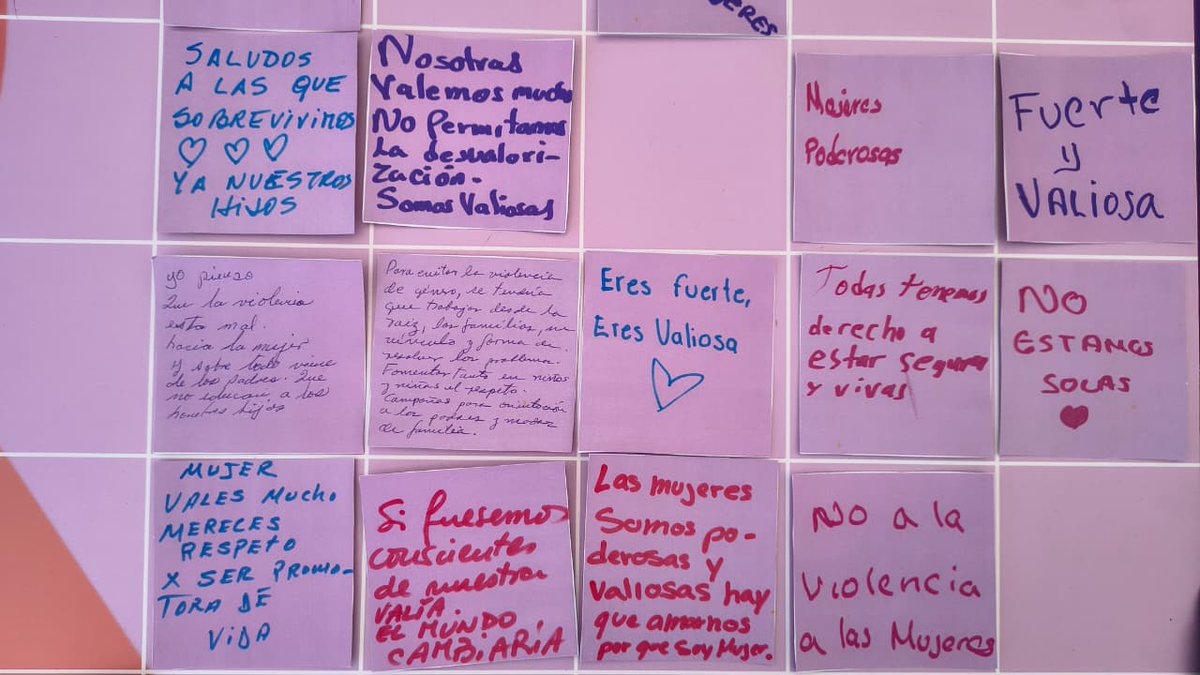 ERES
SALUDOS
A LAS QUE
SOBREVIVIMOS
Y A NUESTROS
HIJOS
Nosotras
Valemos mucho
No Permitamos
La desvalori-
zación.
Somos Valiosas
Mujeres
Poderosas
Fuerte
y
VALiosa
yo pienso
Que la violencia
esta mal.
hacia la mujer
Y sobre todo viene
de los padres. Que
no educan, a los
hijos
Para evitar la violencia
de género, se tendría
que trabajar desde la
raiz, las familias, su
vínculo y forma de
resolver los problema.
Fomentar tanto en niños
y niñas el respeto.
Campañas para orientación
a los padres y madres
de familia.
Eres fuerte,
Eres Valiosa
Todas tenemos
derecho a
estar segura
y vivas
NO
ESTAMOS
SOLAS
MUJER
VALES Mucho
MERECES
RESPETO
X SER PROMO-
TORA DE
VIDA
Si fuesemos
conscientes
de nuestra
VALÍA
EL MUNDO
CAMBIARÍA
Las mujeres
Somos po-
derosas y
valiosas hay
que amarnos
por que Soy Mujer.
No a la
Violencia
a las Mujeres